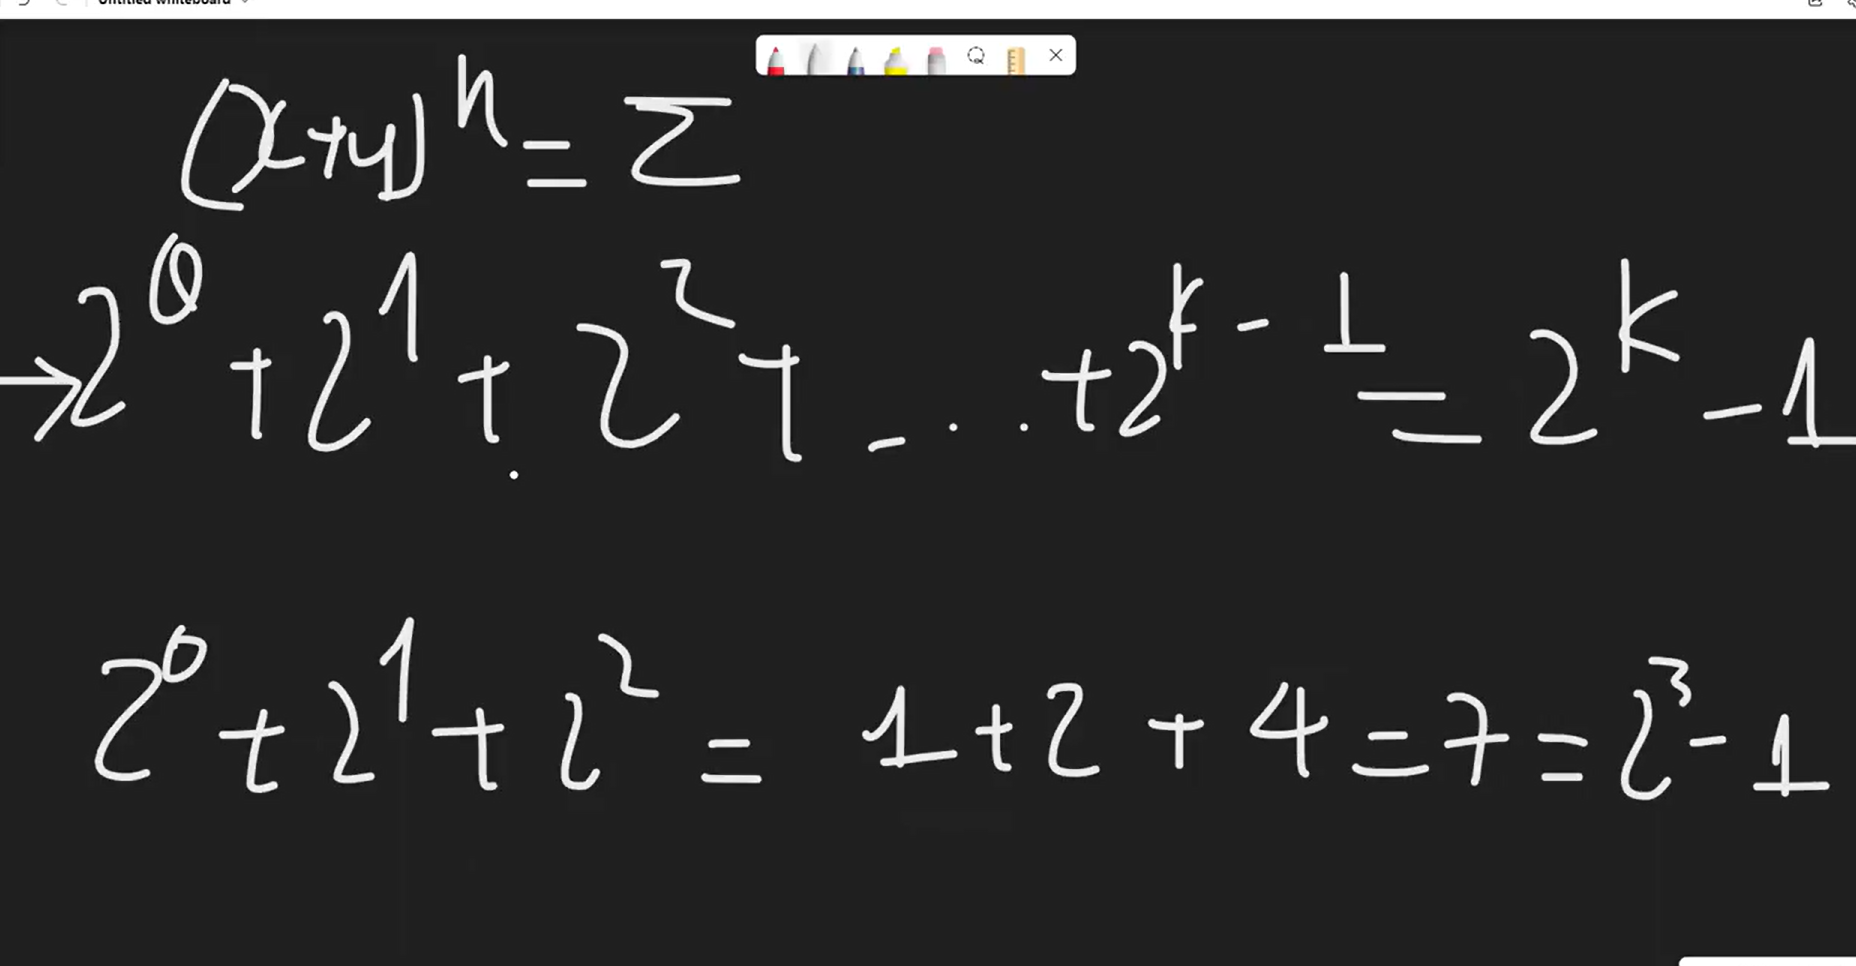 Untitled whiteboard
(x+y)^n = Σ
→ 2^0 + 2^1 + 2^2 + - . . + 2^k - 1 = 2^k - 1
2^0 + 2^1 + 2^2 = 1 + 2 + 4 = 7 = 2^3 - 1